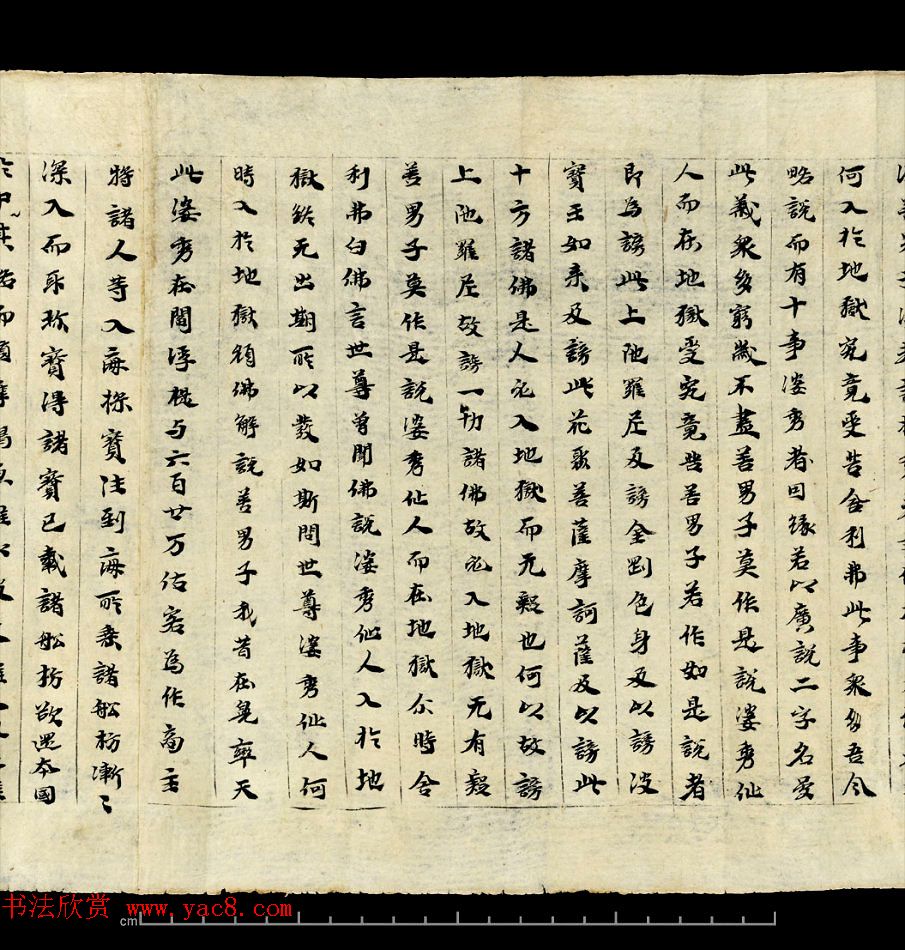 何入於地獄究竟受苦舍利弗此事衆多吾今
略說而有十事婆秀者因緣若以廣說二字名受
此義衆多窮歲不盡善男子莫作是說婆秀仙
人而在地獄受究竟些善男子若作如是說者
即為謗此上陁羅尼及謗金剛色身及以謗波
寶王如来及謗此花聚菩薩摩訶薩及以謗此
十方諸佛是人必入地獄而无疑也何以故謗
上陁羅尼故謗一切諸佛故必入地獄无有疑
善男子莫作是說婆秀仙人而在地獄尒時舍
利弗白佛言世尊曾聞佛說婆秀仙人入於地
獄終无出期所以發如斯問世尊婆秀仙人何
時入於地獄頋佛解說善男子我昔在兜率天
此婆秀在閻浮提与六百廿万估客為作商主
將諸人等入海採寶往到海所乘諸舩舫漸〻
深入而取珎寶得諸寶已載諸舩舫欲還本國
书法欣赏 www.yac8.com
cm